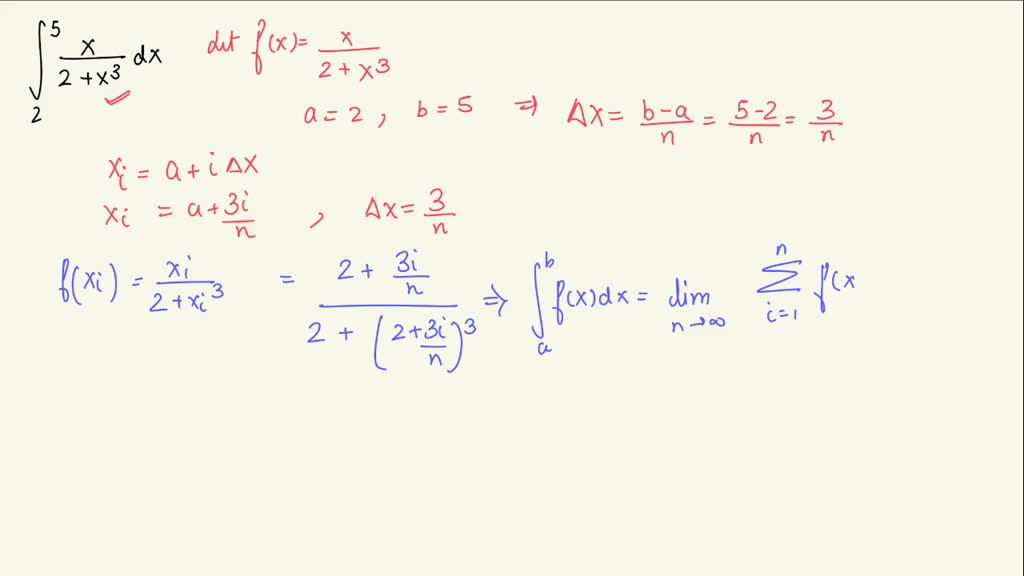 ∫₂⁵ x/(2+x³) dx let f(x) = x/(2+x³)
a = 2 , b = 5 ⇒ Δx = (b-a)/n = (5-2)/n = 3/n
xᵢ = a + i Δx
xᵢ = a + 3i/n , Δx = 3/n
f(xᵢ) = xᵢ/(2+xᵢ³) = (2 + 3i/n)/(2 + (2+3i/n)³) ⇒ ∫ₐᵇ f(x)dx = lim n→∞ ∑ i=1 n f(x